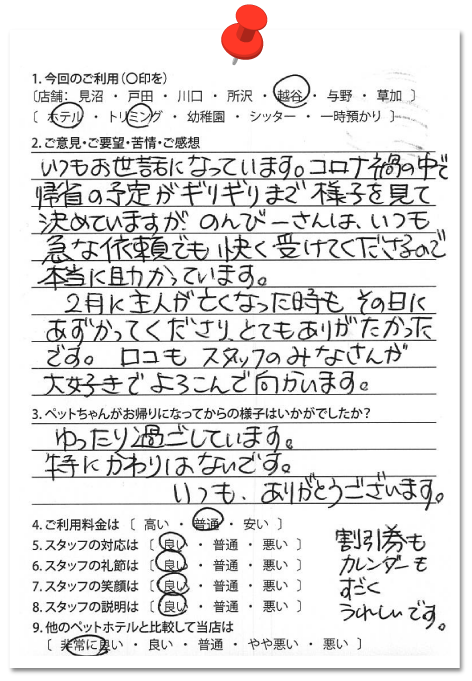 1.今回のご利用(〇印を)
〔店舗: 見沼 ・ 戸田 ・ 川口 ・ 所沢 ・ 越谷 ・ 与野 ・ 草加 〕
〔 ホテル ・ トリミング ・ 幼稚園 ・ シッター ・ 一時預かり 〕
2.ご意見・ご要望・苦情・ご感想
いつもお世話になっています。コロナ禍の中で
帰省の予定がギリギリまで様子を見て
決めていますが、のんびーさんは、いつも
急な依頼でも快く受けてくださるので
本当に助かっています。
2月に主人が亡くなった時も その日に
あずかってくださり、とてもありがたかった
です。 ロコも スタッフのみなさんが
大好きで よろこんで向かいます。
3.ペットちゃんがお帰りになってからの様子はいかがでしたか?
ゆったり過ごしています。
特にかわりはないです。
いつも、ありがとうございます。
4.ご利用料金は 〔 高い ・ 普通 ・ 安い 〕
5.スタッフの対応は 〔 良い ・ 普通 ・ 悪い 〕
6.スタッフの礼節は 〔 良い ・ 普通 ・ 悪い 〕
7.スタッフの笑顔は 〔 良い ・ 普通 ・ 悪い 〕
8.スタッフの説明は 〔 良い ・ 普通 ・ 悪い 〕
9.他のペットホテルと比較して当店は
〔 非常に良い ・ 良い ・ 普通 ・ やや悪い ・ 悪い 〕
割引券も
カレンダーも
すごく
うれしいです。